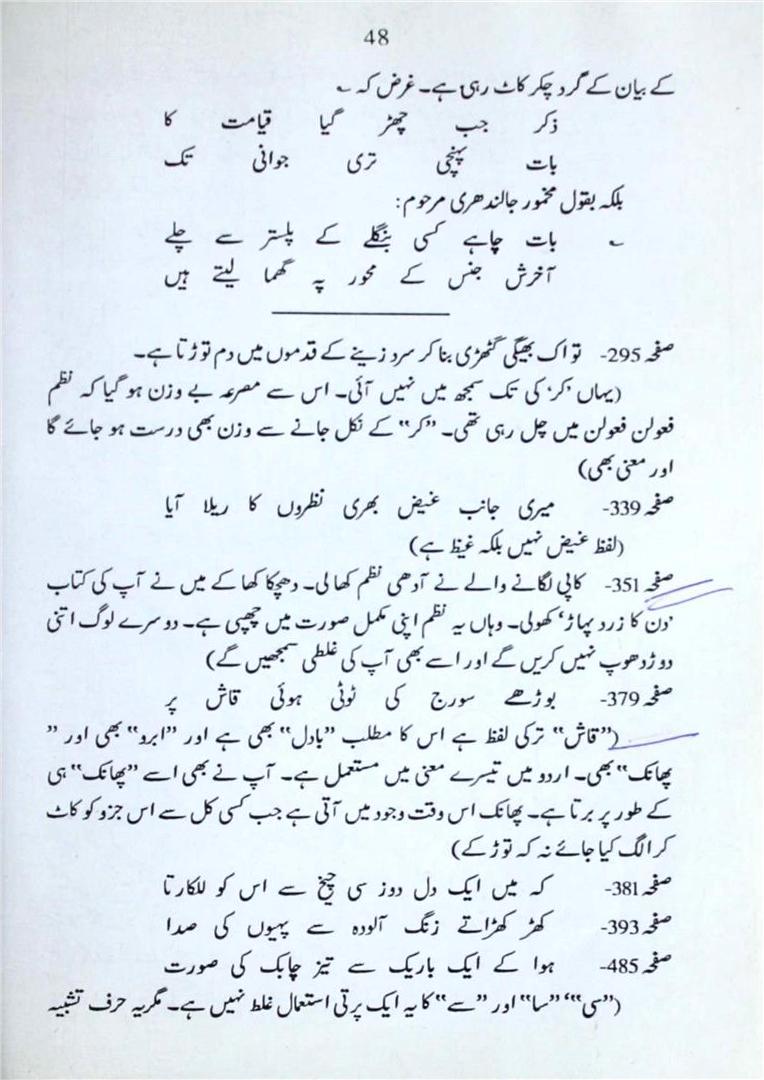 48
کے بیان کے گرد چکر کاٹ رہی ہے۔ غرض کہ ؎
ذکر جب چھڑ گیا قیامت کا
بات پہنچی تری جوانی تک
بلکہ بقول مخمور جالندھری مرحوم:
؎ بات چاہے کسی بنگلے کے پلستر سے چلے
آخرش جنس کے محور پہ گھما لیتے ہیں
صفحہ 295- تو اک بھیگی گٹھڑی بنا کر سرد زینے کے قدموں میں دم توڑتا ہے۔
(یہاں ’کر‘ کی تک سمجھ میں نہیں آئی۔ اس سے مصرعہ بے وزن ہو گیا کہ نظم
فعولن فعولن میں چل رہی تھی۔ ”کر“ کے نکل جانے سے وزن بھی درست ہو جائے گا
اور معنی بھی)
صفحہ 339- میری جانب غیض بھری نظروں کا ریلا آیا
(لفظ غیض نہیں بلکہ غیظ ہے)
صفحہ 351- کاپی لگانے والے نے آدھی نظم کھا لی۔ دھچکا کھا کے میں نے آپ کی کتاب
’دن کا زرد پہاڑ‘ کھولی۔ وہاں یہ نظم اپنی مکمل صورت میں چھپی ہے۔ دوسرے لوگ اتنی
دوڑ دھوپ نہیں کریں گے اور اسے بھی آپ کی غلطی سمجھیں گے)
صفحہ 379- بوڑھے سورج کی ٹوٹی ہوئی قاش پر
(”قاش“ ترکی لفظ ہے اس کا مطلب ”بادل“ بھی ہے اور ”ابرو“ بھی اور ”
پھانک“ بھی۔ اردو میں تیسرے معنی میں مستعمل ہے۔ آپ نے بھی اسے ”پھانک“ ہی
کے طور پر برتا ہے۔ پھانک اس وقت وجود میں آتی ہے جب کسی کل سے اس جزو کو کاٹ
کر الگ کیا جائے نہ کہ توڑ کے)
صفحہ 381- کہ میں ایک دل دوز سی چیخ سے اس کو للکارتا
صفحہ 393- کھڑ کھڑاتے زنگ آلودہ سے پہیوں کی صدا
صفحہ 485- ہوا کے ایک باریک سے تیز چابک کی صورت
(”سی“‘ ”سا“ اور ”سے“ کا یہ ایک پرتی استعمال غلط نہیں ہے۔ مگر یہ حرف تشبیہ